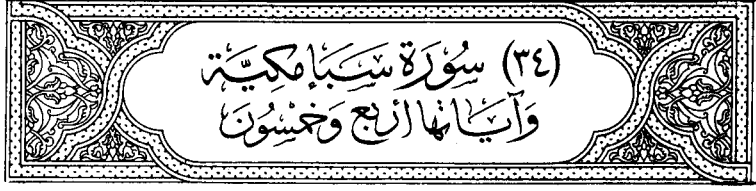 (٣٤) سُورَة سَبَإ مَكِيَّة
وَآيَاتها أربَع وَخَمْسُونَ